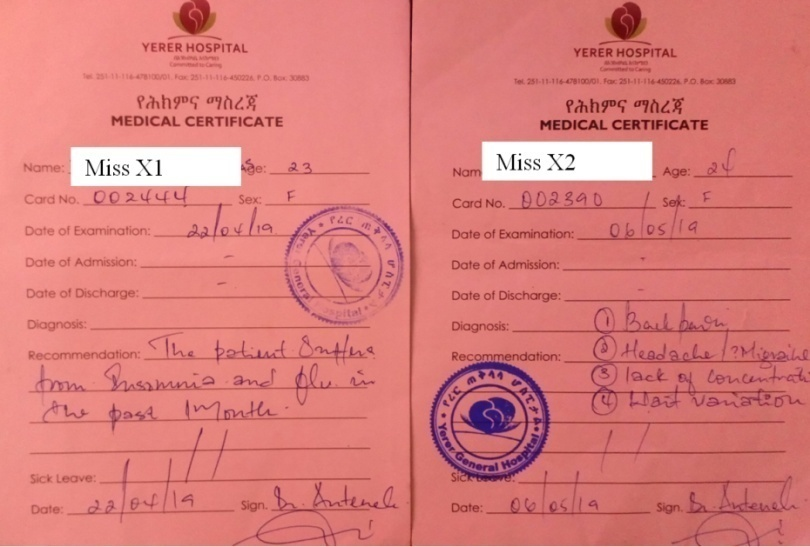 YERER HOSPITAL
Committed to Caring
Tel. 251-11-116-478100/01, Fax: 251-11-116-450226, P.O. Box: 30883
የሕክምና ማስረጃ
MEDICAL CERTIFICATE
Name: Miss X1 Age: 23
Card No. 002444 Sex: F
Date of Examination: 22/04/19
Date of Admission: -
Date of Discharge: -
Diagnosis:
Recommendation: The patient Suffers
from Insomnia and flu in
the past 1 Month.
Sick Leave:
Date: 22/04/19 Sign. Dr. Anteneh
የረር ጠቅላላ ሆስፒታል
Yerer General Hospital
YERER HOSPITAL
Committed to Caring
Tel. 251-11-116-478100/01, Fax: 251-11-116-450226, P.O. Box: 30883
የሕክምና ማስረጃ
MEDICAL CERTIFICATE
Nam Miss X2 Age: 24
Card No. 002390 Sex: F
Date of Examination: 06/05/19
Date of Admission: -
Date of Discharge: -
Diagnosis: ① Back pain
Recommendation: ② Headache /?Migraine
③ lack of concentrati
④ variation
Sick Leave:
Date: 06/05/19 Sign. Dr. Anteneh
የረር ጠቅላላ ሆስፒታል
Yerer General Hospital